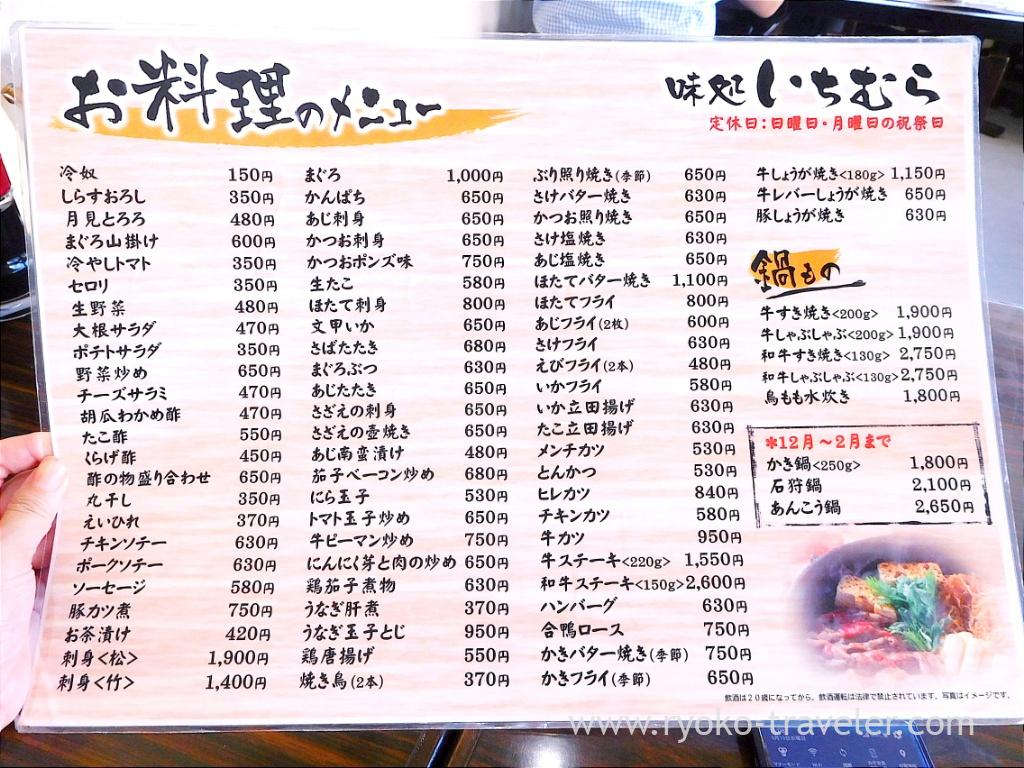 お料理のメニュー
味処 いちむら
定休日：日曜日・月曜日の祝祭日
冷奴 150円
しらすおろし 350円
月見とろろ 480円
まぐろ山掛け 600円
冷やしトマト 350円
セロリ 350円
生野菜 480円
大根サラダ 470円
ポテトサラダ 350円
野菜炒め 650円
チーズサラミ 470円
胡瓜わかめ酢 470円
たこ酢 550円
くらげ酢 450円
酢の物盛り合わせ 650円
丸干し 350円
えいひれ 370円
チキンソテー 630円
ポークソテー 630円
ソーセージ 580円
豚カツ煮 750円
お茶漬け 420円
刺身<松> 1,900円
刺身<竹> 1,400円
まぐろ 1,000円
かんぱち 650円
あじ刺身 650円
かつお刺身 650円
かつおポンズ味 750円
生たこ 580円
ほたて刺身 800円
文甲いか 650円
さばたたき 680円
まぐろぶつ 630円
あじたたき 650円
さざえの刺身 650円
さざえの壺焼き 650円
あじ南蛮漬け 480円
茄子ベーコン炒め 680円
にら玉子 530円
トマト玉子炒め 650円
牛ピーマン炒め 750円
にんにく芽と肉の炒め 650円
鶏茄子煮物 630円
うなぎ肝煮 370円
うなぎ玉子とじ 950円
鶏唐揚げ 550円
焼き鳥(2本) 370円
ぶり照り焼き(季節) 650円
さけバター焼き 630円
かつお照り焼き 650円
さけ塩焼き 630円
あじ塩焼き 650円
ほたてバター焼き 1,100円
ほたてフライ 800円
あじフライ(2枚) 600円
さけフライ 630円
えびフライ(2本) 480円
いかフライ 580円
いか立田揚げ 630円
たこ立田揚げ 630円
メンチカツ 530円
とんかつ 530円
ヒレカツ 840円
チキンカツ 580円
牛カツ 950円
牛ステーキ<220g> 1,550円
和牛ステーキ<150g> 2,600円
ハンバーグ 630円
合鴨ロース 750円
かきバター焼き(季節) 750円
かきフライ(季節) 650円
牛しょうが焼き<180g> 1,150円
牛レバーしょうが焼き 650円
豚しょうが焼き 630円
鍋もの
牛すき焼き<200g> 1,900円
牛しゃぶしゃぶ<200g> 1,900円
和牛すき焼き<130g> 2,750円
和牛しゃぶしゃぶ<130g> 2,750円
鳥もも水炊き 1,800円
*12月〜2月まで
かき鍋<250g> 1,800円
石狩鍋 2,100円
あんこう鍋 2,650円
飲酒は２０歳になってから。飲酒運転は法律で禁止されています。写真はイメージです。
www.ryoko-traveler.com